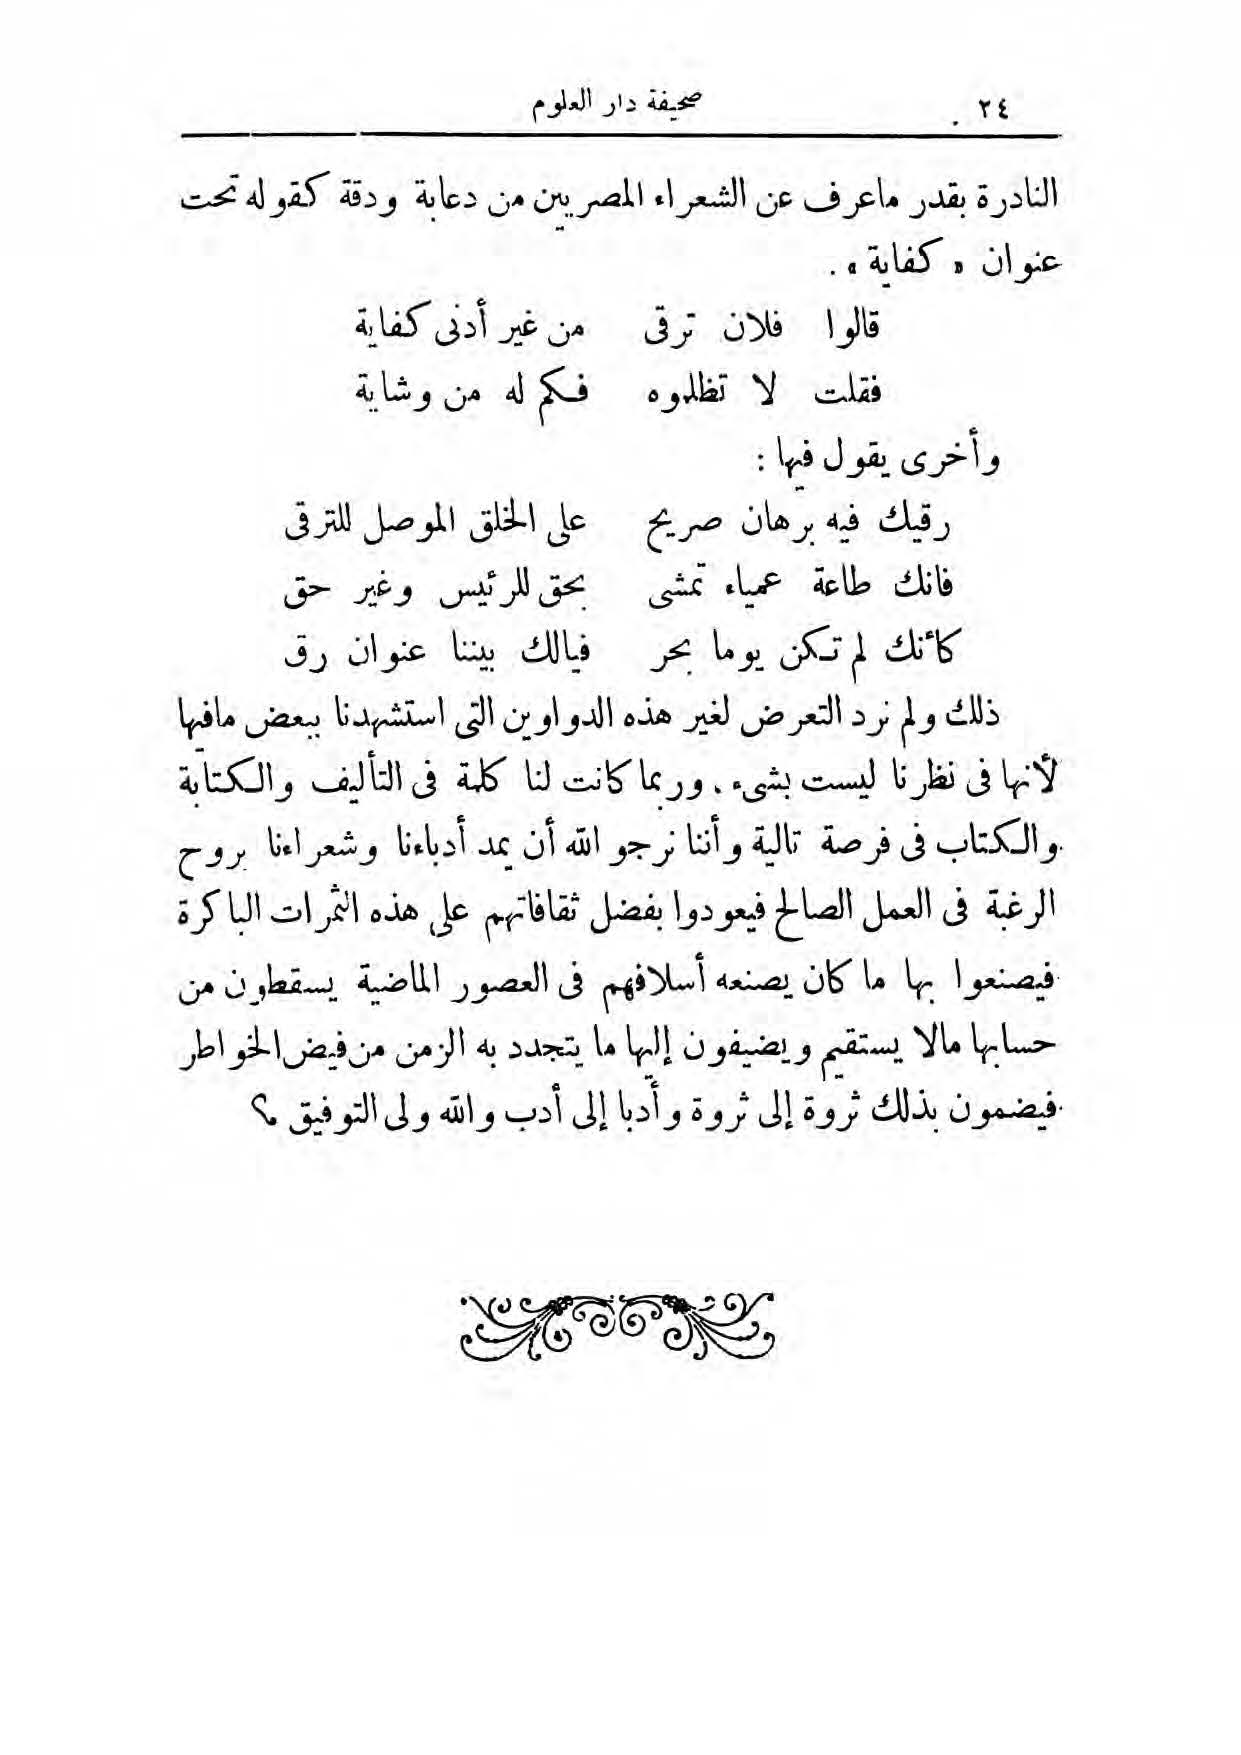 ٢٤ صحيفة دار العلوم
النادرة بقدر ماعرف عن الشعراء المصريين من دعابة ودقة كقوله تحت
عنوان « كفاية » .
قالوا فلان ترقى من غير أدنى كفاية
فقلت لا تظلموه فكم له من وشاية
وأخرى يقول فيها :
رقيك فيه برهان صريح على الخلق الموصل للترقى
فانك طاعة عمياء تمشى بحق للرئيس وغير حق
كأنك لم تكن يوما بحر فيالك بيننا عنوان رق
ذلك ولم نرد التعرض لغير هذه الدواوين التى استشهدنا ببعض مافيها
لأنها فى نظرنا ليست بشىء . وربما كانت لنا كلمة فى التأليف والكتابة
والكتاب فى فرصة تالية وأننا نرجو الله أن يمد أدباءنا وشعراءنا بروح
الرغبة فى العمل الصالح فيعودوا بفضل ثقافاتهم على هذه الثمرات الباكرة
فيصنعوا بها ما كان يصنعه أسلافهم فى العصور الماضية يسقطون من
حسابها مالا يستقيم ويضيفون إليها ما يتجدد به الزمن من فيض الخواطر
فيضمون بذلك ثروة إلى ثروة وأدبا إلى أدب والله ولى التوفيق ؟